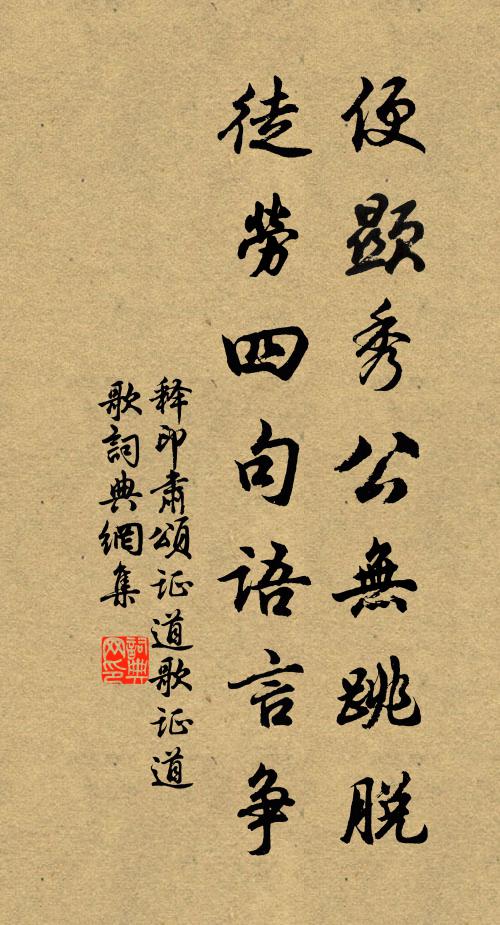 便顯秀公無跳脫
徒勞四句語言争
释印肃頌证道歌证道
歌詞典網集
詞典
网印